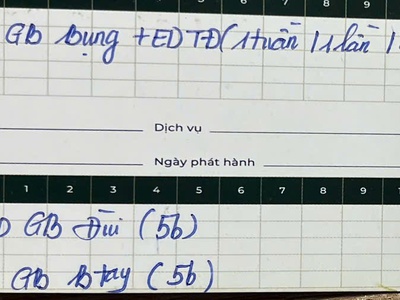 GB Bụng + EDTĐ (1 tuần / 1 lần /
Dịch vụ
Ngày phát hành
1 2 3 4 5 6 7 8 9
GB Đùi (5b)
GB Btay (5b)